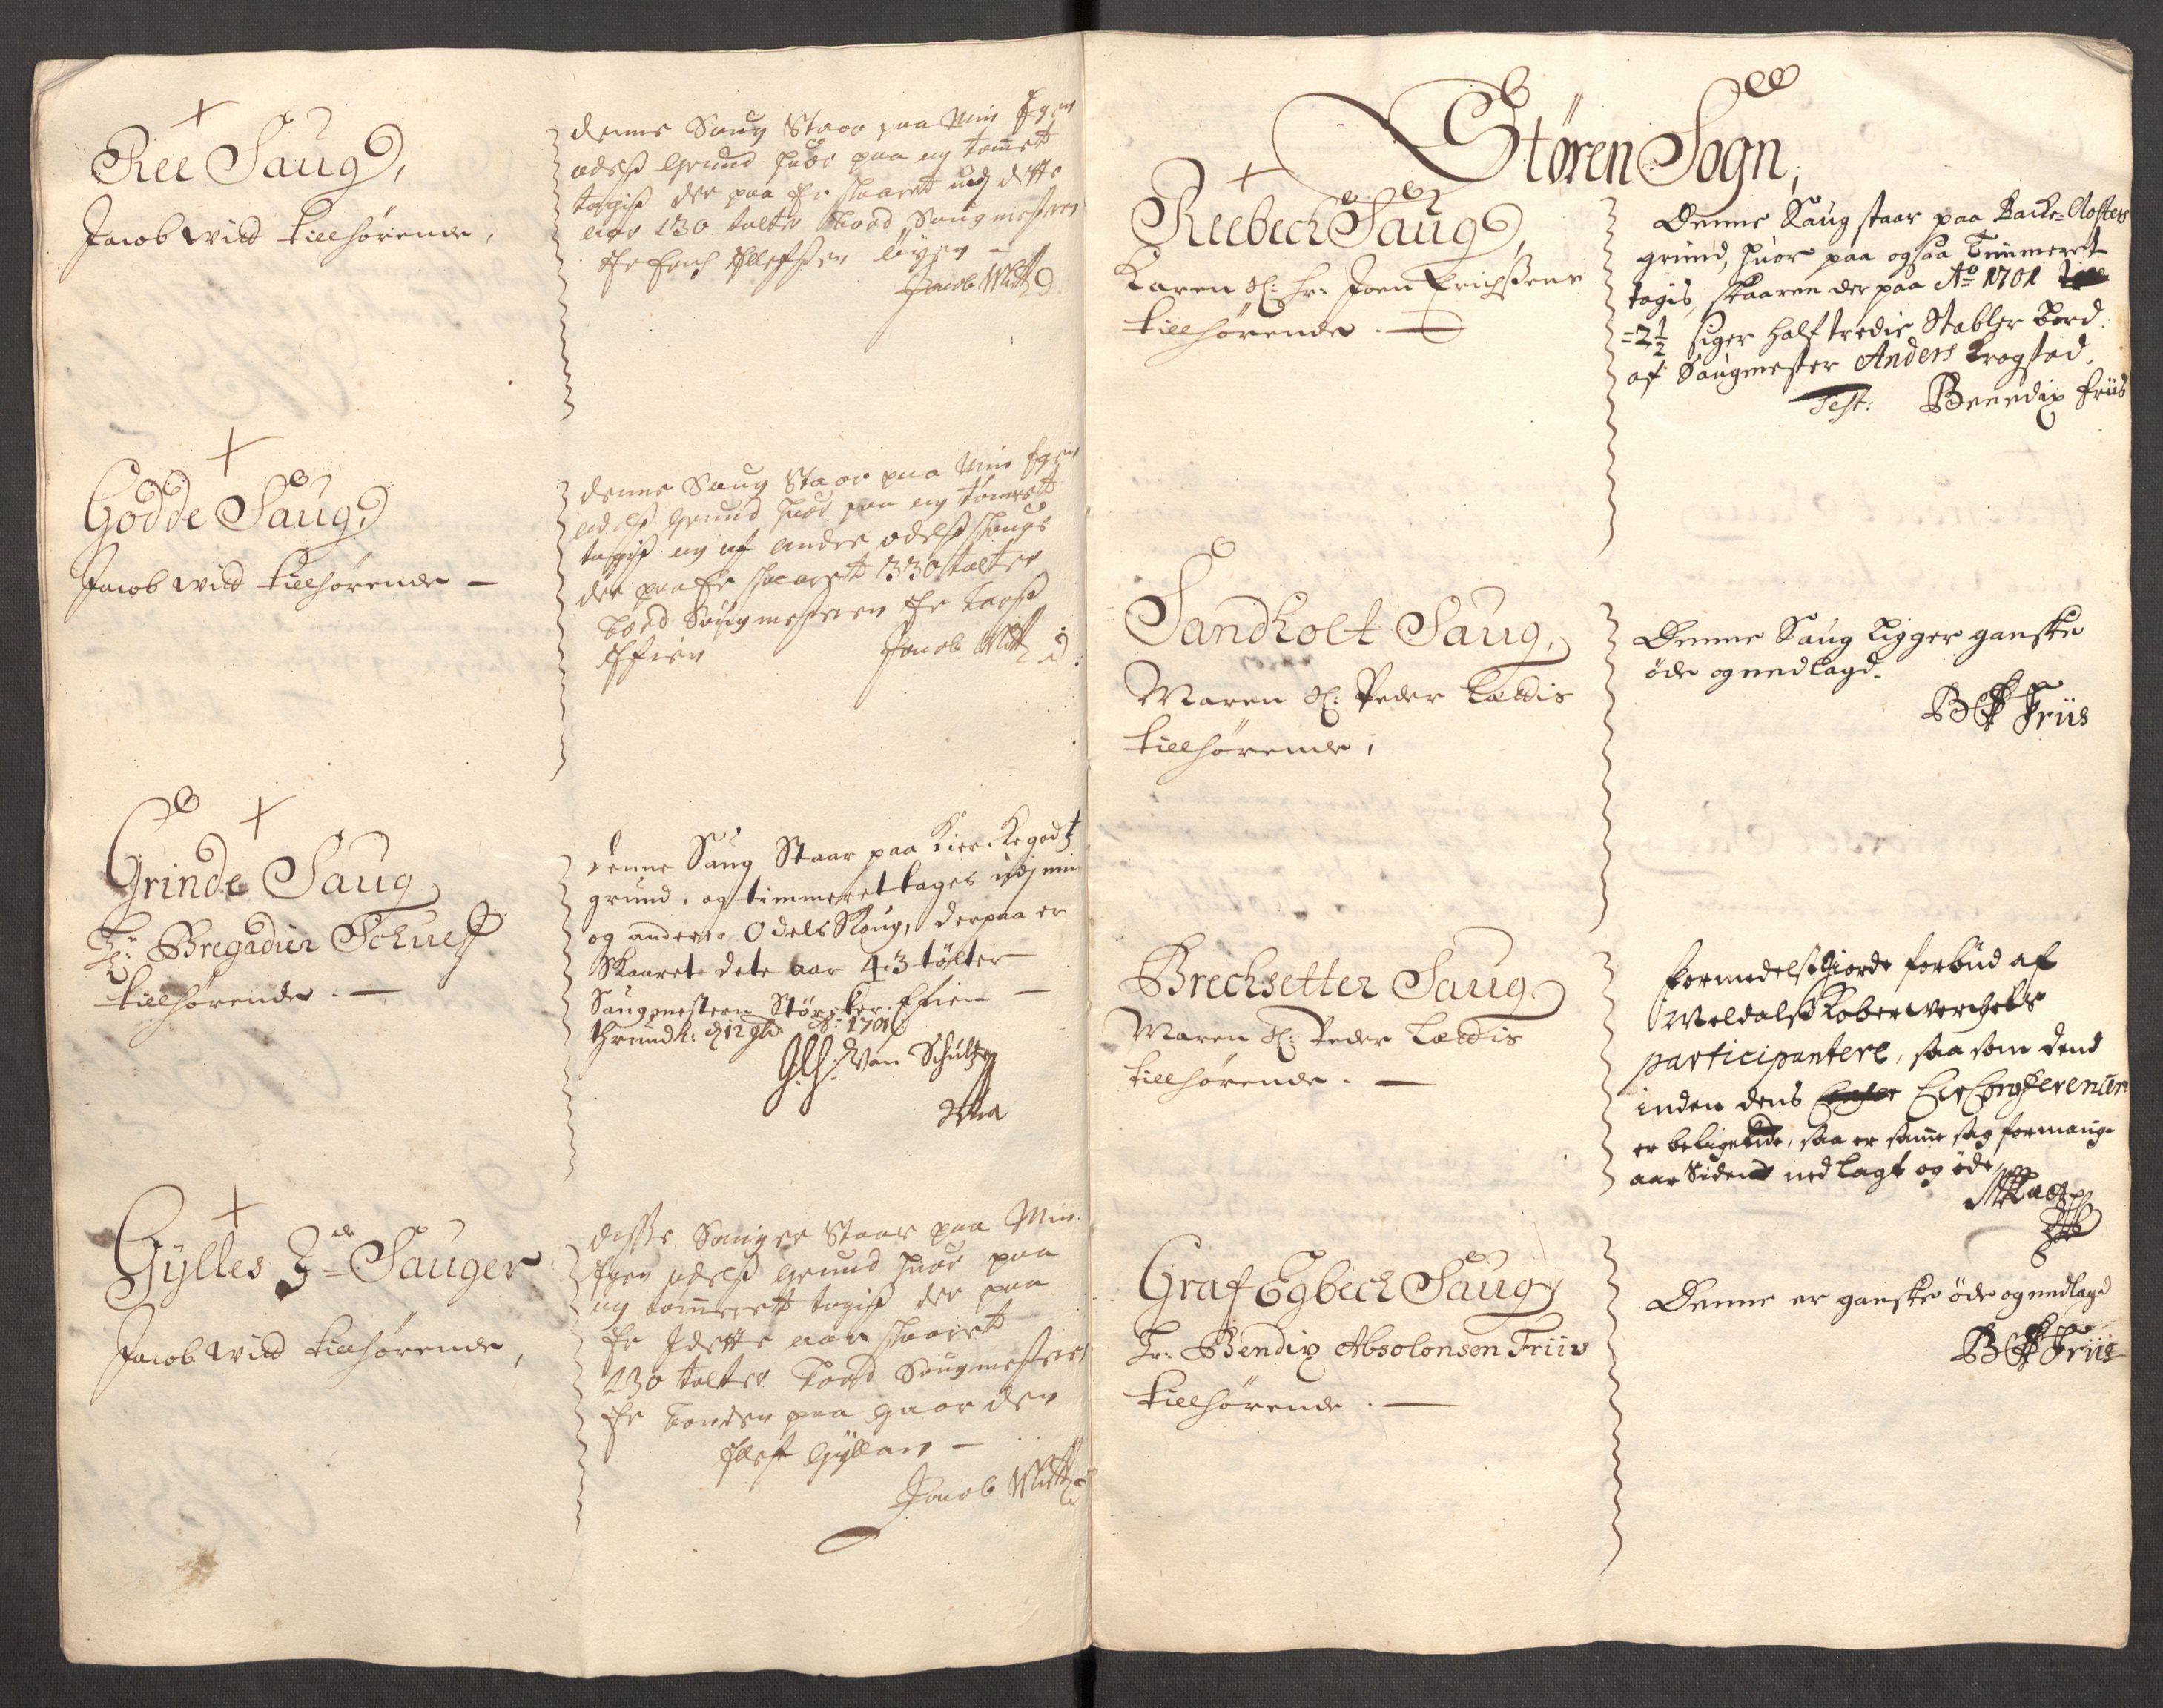 +
Ree Saug,
Jacob Wild tillhørende,
denne Saug Staar paa Min Egen
odelß Grund huor paa og tomret
tagiß der paa Er skaaret udj dette
aar 130 tolter bord Saugmesteren
Er Erich Ellefsen
Jacob Wild
+
Godde Saug
Jacob Wild tillhørende –
denne Saug Staar paa Min Egen
odelß Grund huor paa og tomret
tagiß og af andre odelß skougs
der paa Er skaaret 330 tolter
bord Saugmesteren Er Larß
Effien
Jacob Wild
+
Grinde Saug
Hr: Bregadier Schults
tillhørende. –
denne Saug Staar paa Kierckegodtz
grund, og timmeret tages udj min
og anderer Odels Skoug, derpaa er
Skaaret dete aar 43 tølter
Saugmesteren Størcker Effien –
thrundh: d 12 1701
Von Schultz
+
Gylles 3de Sauger
Jacob Wild tillhørende,
disse Sauger Staar paa Min
Egen odelß Grund huor paa
og tommeret tagiß der paa
Er J dette aar skaaret
230 tolter bord Saugmesteren
Er bonden paa gaarden
Ellef Gyllan –
Jacob Wild
Støren Sogn,
+
Reebech Saug,
Karen Sl: hr: Joen Erichsens
tillhørende. –
Denne Saug staar paa Backe-Closters
grund, huor paa ogsaa Timmeret
tagis, skaaren der paa Ao 1701
= 2½ siger half tredie Stabler bord
af Saugmester Anders Krogstad.
Test: Benedix Friis
Sandholt Saug,
Maren Sl: Peder Lældis
tillhørende,
Denne Saug ligger ganske
öde og nedlagd.
B Friis
Brechsetter Saug
Maren Sl: Peder Lældis
tillhørende. –
formedelst giorde forbud af
Meldalß Kober werchets
participantere, saa som dend
inden dens Circumferencer
er beligende, saa er samme sag for mange
aar Siden ned lagt og øde
Graf Egbech Saug
Hr: Bendix Absolonsen Friis
tillhørende. –
Denne er ganske öde og nedlagd
B Friis